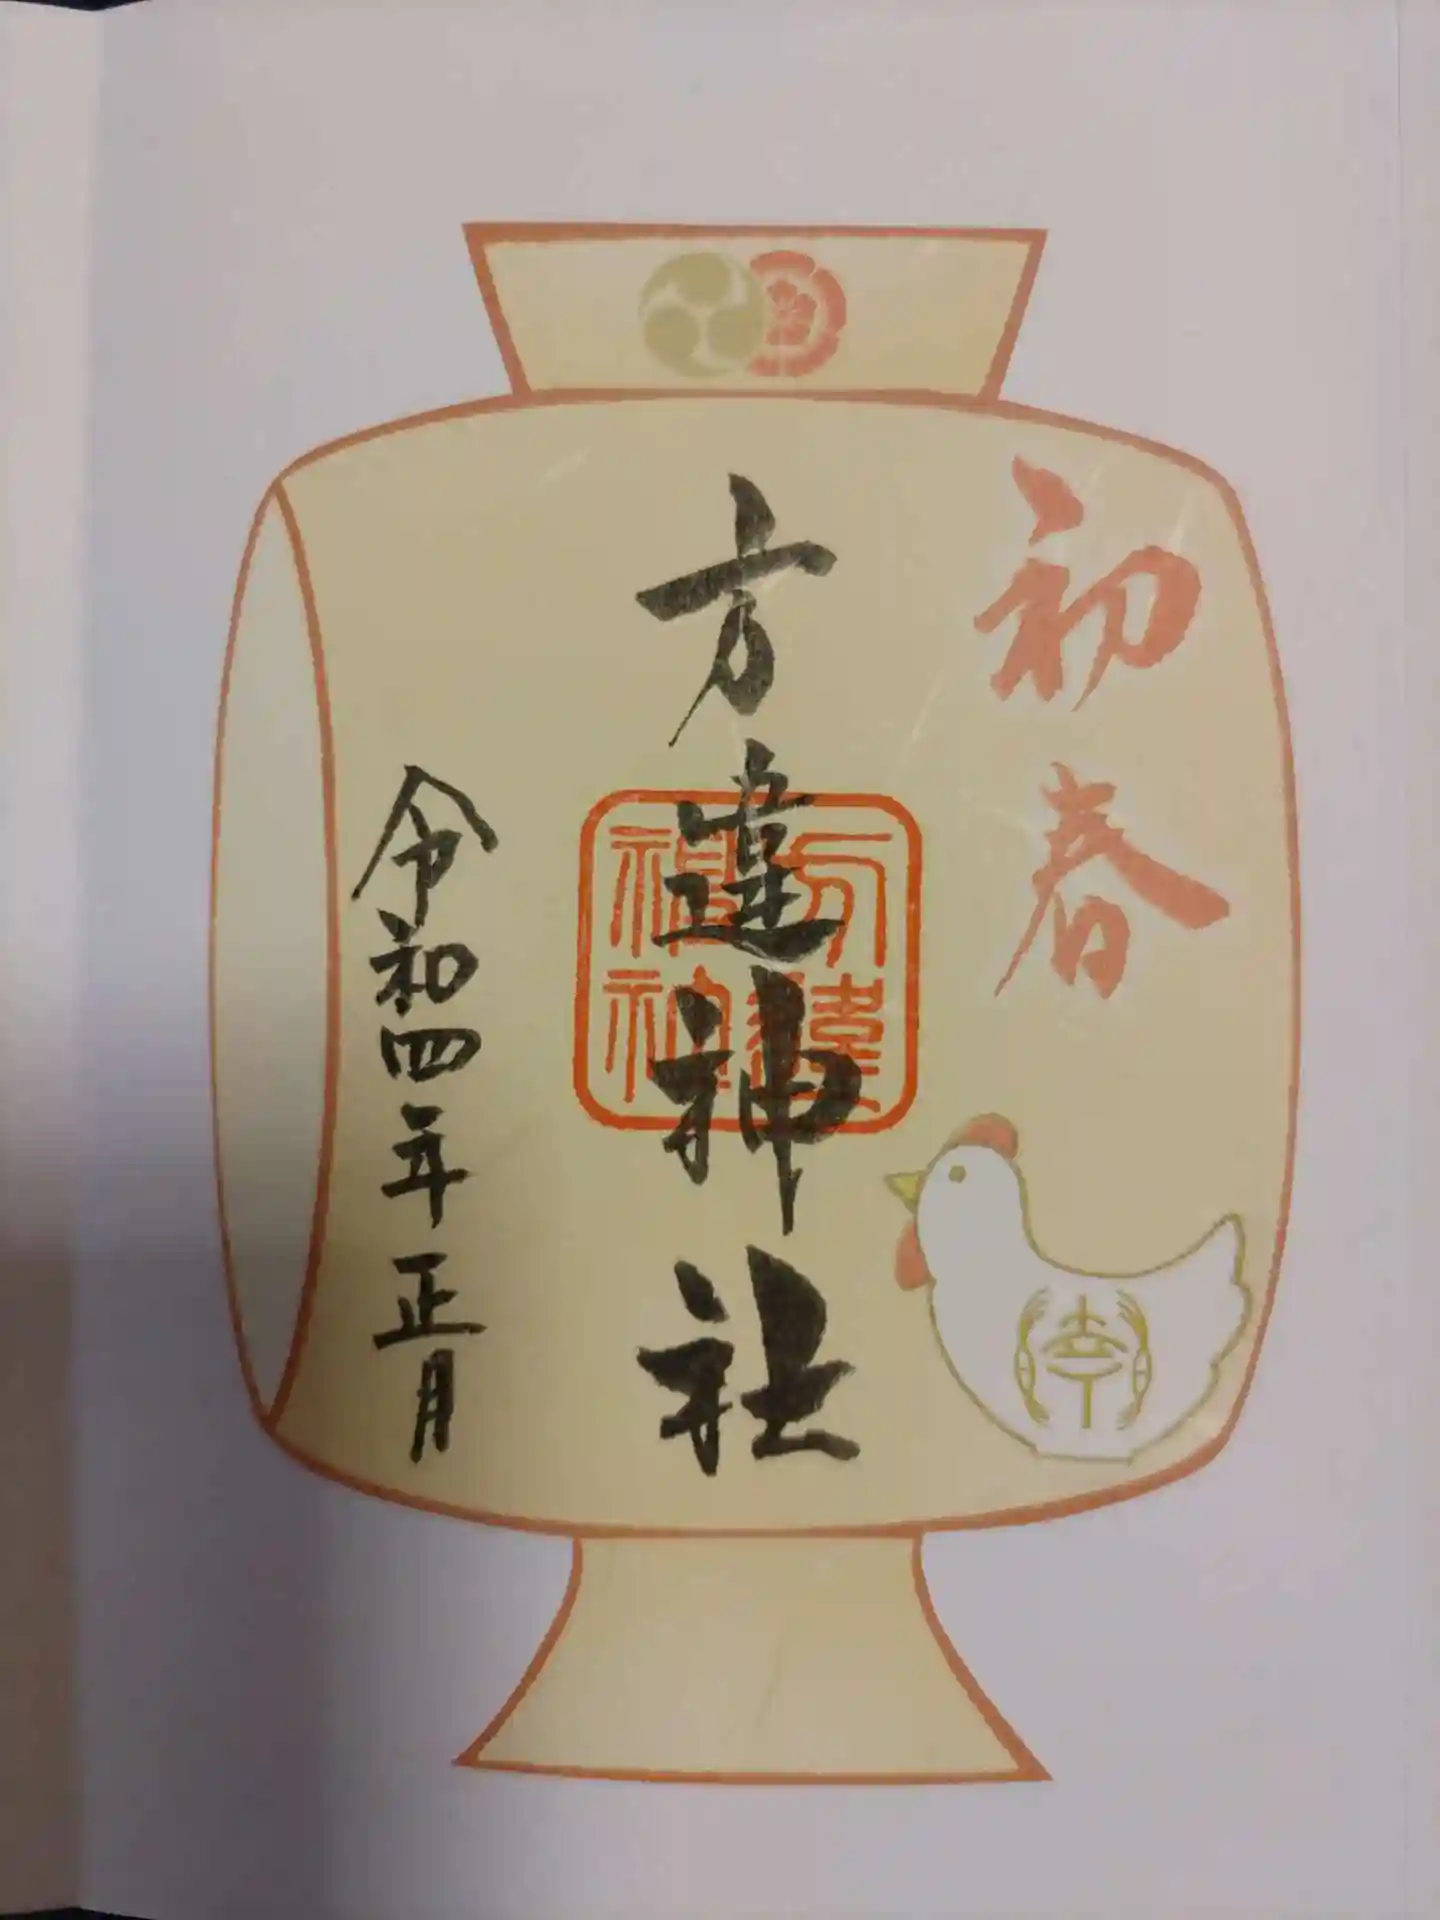 初春
方違神社
方違神社
令和四年正月
幸